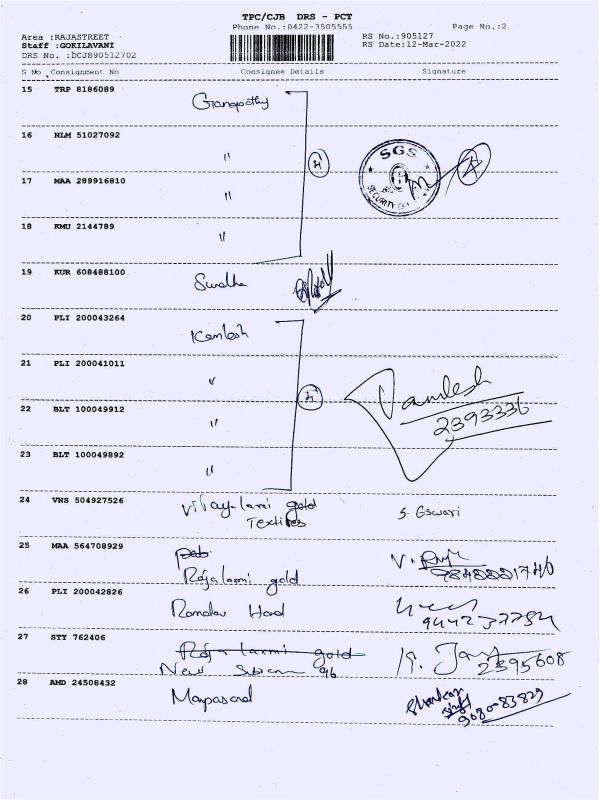 TPC/CJB DRS - PCT
Phone No.:0422-3505555 Page No.:2
Area :RAJASTREET RS No.:905127
Staff :GOKILAVANI RS Date:12-Mar-2022
DRS No. :DCJB90512702
S No Consignment No Consignee Details Signature
15 TRP 8186089 Ganapathy
16 NLM 51027092 "
SGS
SECURITY
4
17 MAA 289916810 "
18 KMU 2144789 "
19 KUR 608488100 Swatha
20 PLI 200043264 Kamlesh
21 PLI 200041011 "
4
22 BLT 100049912 "
2393336
23 BLT 100049892 "
24 VNS 504927526 gold
Textiles
25 MAA 564708929
Raja laxmi gold
26 PLI 200042826
27 STY 762406 Raja laxmi gold
New 96
2395608
28 AMD 24508432
9080-83829